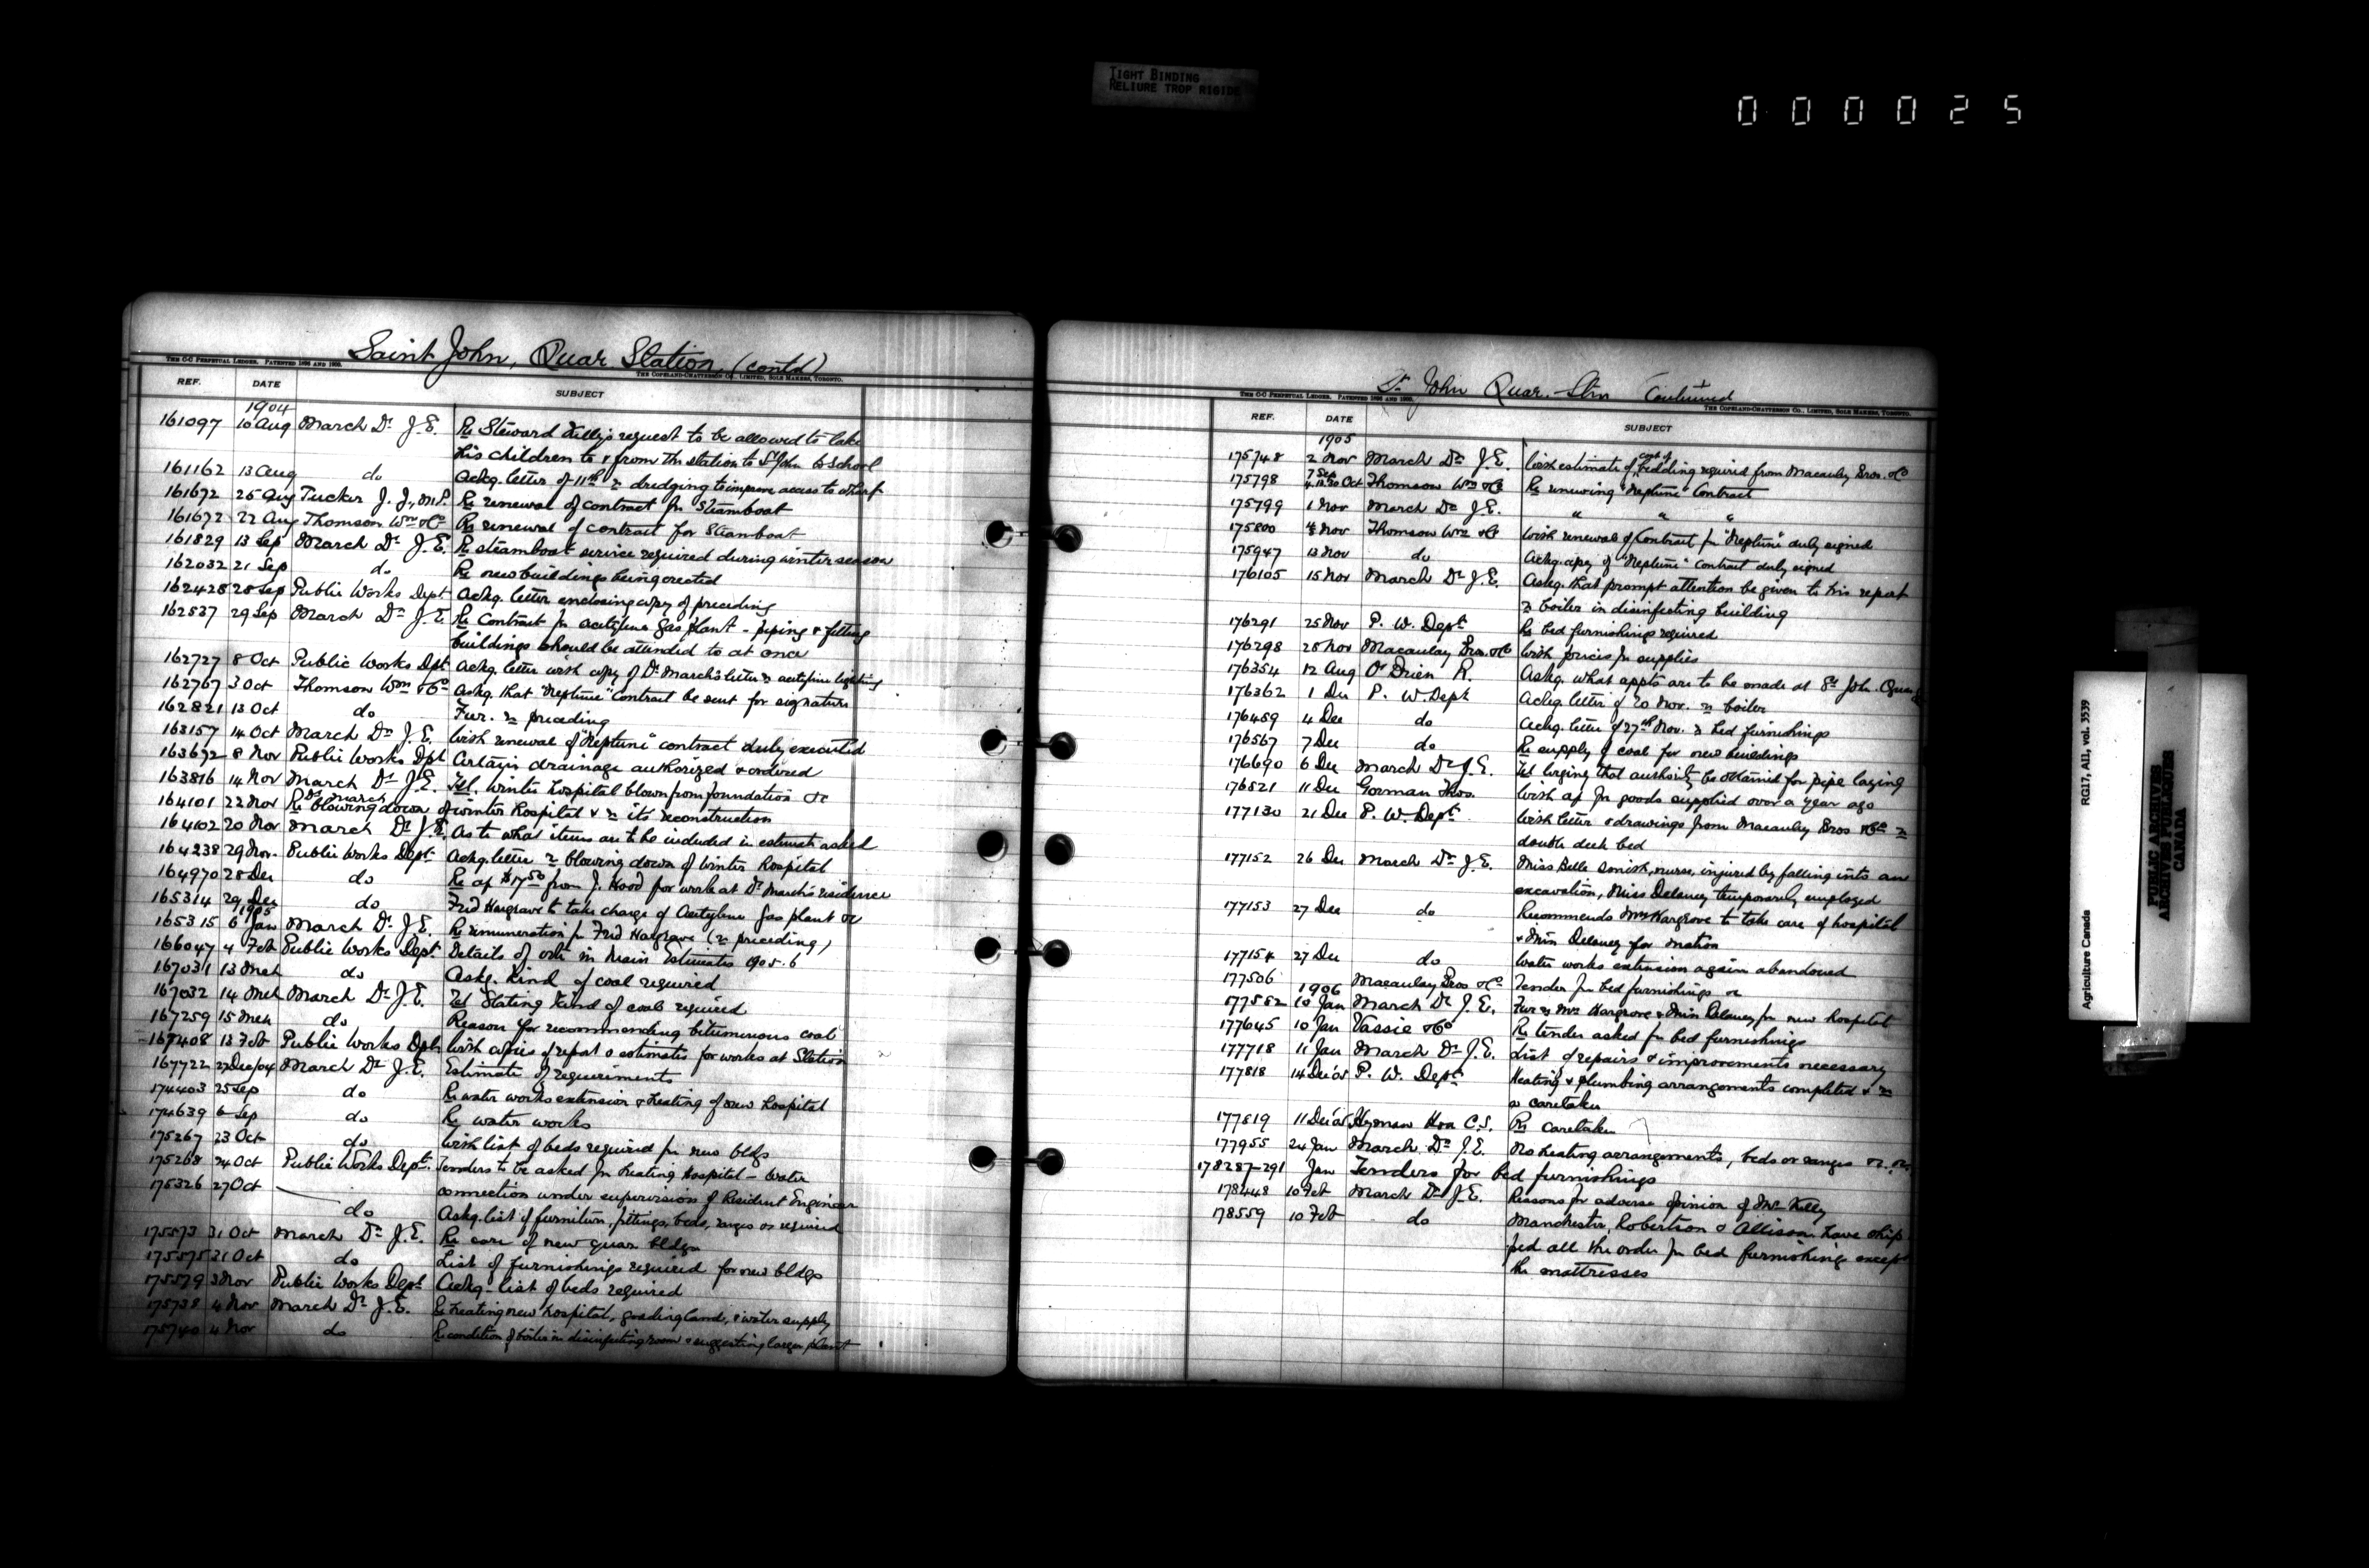 TIGHT BINDING
RELIURE TROP RIGIDE
000025
Saint John, Quar. Station, (contd)
THE C-C PERPETUAL LEDGER. PATENTED 1896 AND 1900.
THE COPELAND-CHATTERSON CO., LIMITED, SOLE MAKERS, TORONTO.
REF. DATE SUBJECT
1904
161097 10 Aug March Dr J.E. Re Steward Kelly's request to be allowed to take
his children to & from the station to St John to School
161162 13 Aug do Ackg. letter of 11th re dredging to improve access to wharf
161672 25 Aug Tucker J. J., M.P. Re renewal of contract for Steamboat
161672 22 Aug Thomson Wm & Co Re renewal of contract for Steamboat
161829 13 Sep March Dr J.E. Re steamboat service required during winter season
162032 21 Sep do Re new buildings being erected
162428 28 Sep Public Works Dept Ackg. letter enclosing copy of preceding
162537 29 Sep March Dr J.E. Re Contract for acetylene gas plant - piping & fitting
buildings should be attended to at once
162727 8 Oct Public Works Dpt Ackg. letter with copy of Dr March's letter re acetylene lighting
162767 3 Oct Thomson Wm & Co Askg. that "Neptune" Contract be sent for signature
162821 13 Oct do Fur. re preceding
163157 14 Oct March Dr J.E. With renewal of "Neptune" contract duly executed
163692 8 Nov Public Works Dpt Certain drainage authorized & ordered
163816 14 Nov March Dr J.E. Tel. Winter hospital blown from foundation &c
164101 22 Nov Dr March Re blowing down of winter hospital & re its reconstruction
164102 20 Nov March Dr J.E. As to what items are to be included in estimate asked
164238 29 Nov. Public Works Dept Ackg. letter re blowing down of winter hospital
164970 28 Dec do Re a/c $17.50 from J. Hood for work at Dr March's residence
165314 29 Dec do Fred Hargrave to take charge of Acetylene gas plant &c
1905
165315 6 Jan March Dr J.E. Re remuneration for Fred Hargrave (re preceding)
166047 4 Feb Public Works Dept. Details of vote in Main Estimates 1905-6
167031 13 Mch do Askg. kind of coal required
167032 14 Mch March Dr J.E. Tel Stating kind of coal required
167259 15 Mch do Reason for recommending bituminous coal
167408 13 Feb Public Works Dpt With copies of report & estimates for works at Station
167722 27 Dec/04 March Dr J.E. Estimate of requirements
174403 25 Sep do Re water works extension & heating of new hospital
174639 6 Sep do Re water works
175267 23 Oct do With list of beds required for new bldgs
175268 24 Oct Public Works Dept. Tenders to be asked for heating Hospital - Water
connection under supervision of Resident Engineer
175326 27 Oct do Askg. list of furniture, fittings, beds, ranges &c required
175573 31 Oct March Dr J.E. Re care of new quar bldgs
175575 31 Oct do List of furnishings required for new bldgs
175579 3 Nov Public Works Dept Ackg. list of beds required
175738 4 Nov March Dr J.E. Re heating new hospital, grading land, & water supply
175740 4 Nov do Re condition of boiler in disinfecting room & suggesting larger plant
St John Quar. Stn Continued
THE C-C PERPETUAL LEDGER. PATENTED 1896 AND 1900.
THE COPELAND-CHATTERSON CO., LIMITED, SOLE MAKERS, TORONTO.
REF. DATE SUBJECT
1905
175748 2 Nov March Dr J.E. With estimate of cost of bedding required from Macaulay Bros. & Co
175798 7 Sep 4.12.30 Oct Thomson Wm & Co Re renewing "Neptune" Contract
175799 1 Nov March Dr J.E. " " "
175800 4 Nov Thomson Wm & Co With renewal of Contract for "Neptune" duly signed
175947 13 Nov do Ackg. copy of "Neptune" contract duly signed
176105 15 Nov March Dr J.E. Askg. that prompt attention be given to his report
re boiler in disinfecting building
176291 25 Nov P. W. Dept Re bed furnishings required
176298 25 Nov Macaulay Bros. & Co With prices for supplies
176354 12 Aug O'Brien R. Askg. what appts are to be made at St John Quar
176362 1 Dec P. W. Dept Ackg. letter of 20 Nov. re boiler
176459 4 Dec do Ackg. letter of 27th Nov. re bed furnishings
176567 7 Dec do Re supply of coal for new buildings
176690 6 Dec March Dr J.E. Tel urging that authority be obtained for pipe laying
176521 11 Dec Gorman Thos. With a/c for goods supplied over a year ago
177130 21 Dec P. W. Dept With letter & drawings from Macaulay Bros & Co re
double deck bed
177152 26 Dec March Dr J.E. Miss Belle Smith, nurse, injured by falling into an
excavation, Miss Delaney temporarily employed
177153 27 Dec do Recommends Mrs Hargrove to take care of hospital
& Miss Delaney for matron
177154 27 Dec do Water works extension again abandoned
177506 Macaulay Bros & Co Tender for bed furnishings &c
1906
177582 10 Jan March Dr J.E. Fur re Mrs Hargrove & Miss Delaney for new hospital
177645 10 Jan Vassie & Co Re tender asked for bed furnishings
177718 11 Jan March Dr J.E. List of repairs & improvements necessary
177818 14 Dec '05 P. W. Dept. Heating & plumbing arrangements completed & re
a caretaker
177819 11 Dec '05 Hyman Hon C.S. Re caretaker
177955 24 Jan March Dr J.E. No heating arrangements, beds or ranges &c. &c.
178287-291 Jan Tenders for bed furnishings
178448 10 Feb March Dr J.E. Reasons for adverse opinion of Mr Kelly
178559 10 Feb do Manchester, Robertson & Allison have ship-
ped all the order for bed furnishings except
the mattresses
Agriculture Canada RG17, AII, vol. 3539
PUBLIC ARCHIVES
ARCHIVES PUBLIQUES
CANADA